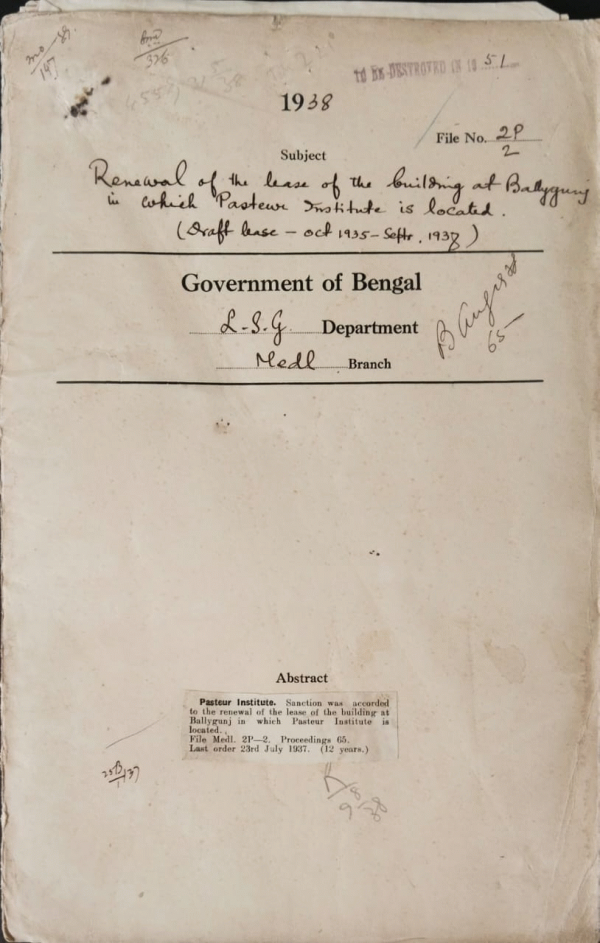 326
147
TO BE DESTROYED IN 19 51
1938
File No. 2P/2
Subject
Renewal of the lease of the building at Ballygunj
in which Pasteur Institute is located.
(Draft lease - Oct 1935 - Septr. 1938)
Government of Bengal
L.S.G. Department
Medl Branch
B Aug 1938
65
Abstract
Pasteur Institute. Sanction was accorded
to the renewal of the lease of the building at
Ballygunj in which Pasteur Institute is
located.
File Medl. 2P—2. Proceedings 65.
Last order 23rd July 1937. (12 years.)
9/8/38